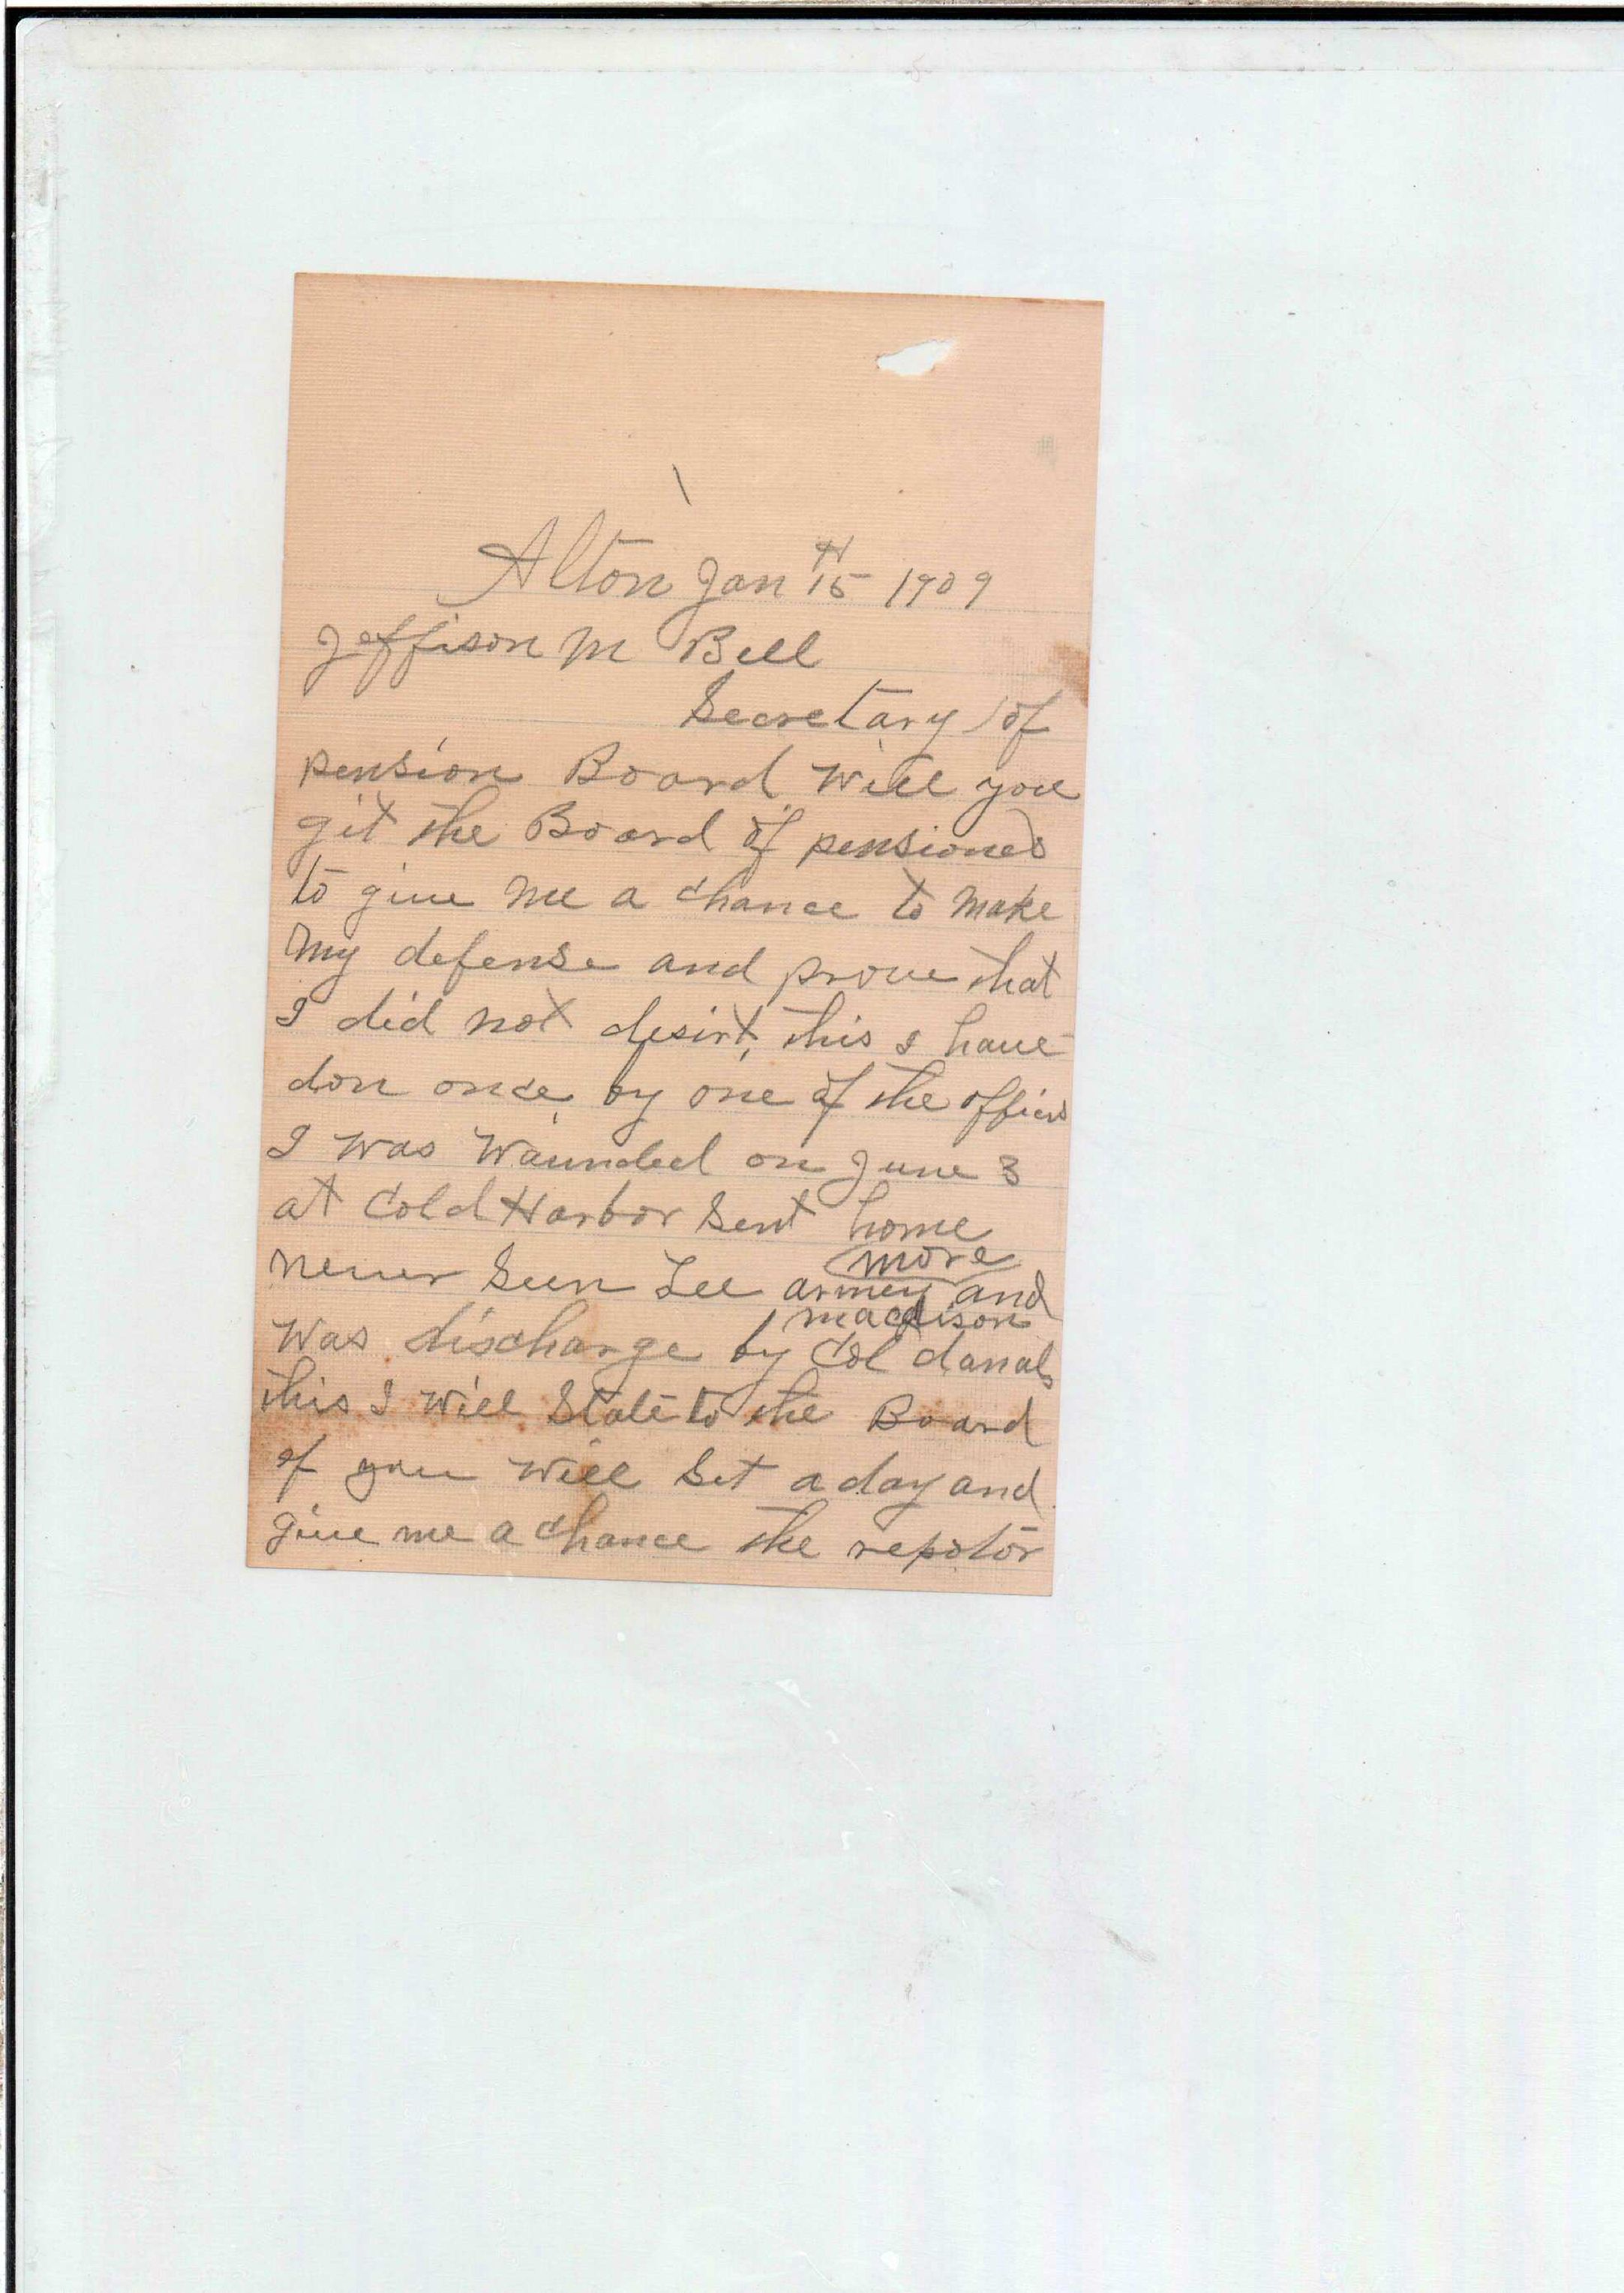 Alton Jan 15th 1909
Jeffison M Bell
Secretary of
pension Board Will you
git the Board of pensiones
to give me a chance to make
my defense and prove that
I did not desirt, this I have
don once by one of the officers
I was Waunded on June 3
at Cold Harbor Sent home
more
never Seen Lee armey and
maddison
Was discharge by Col danals
this I Will State to the Board
if you Will Set a day and
give me a chance the repotor